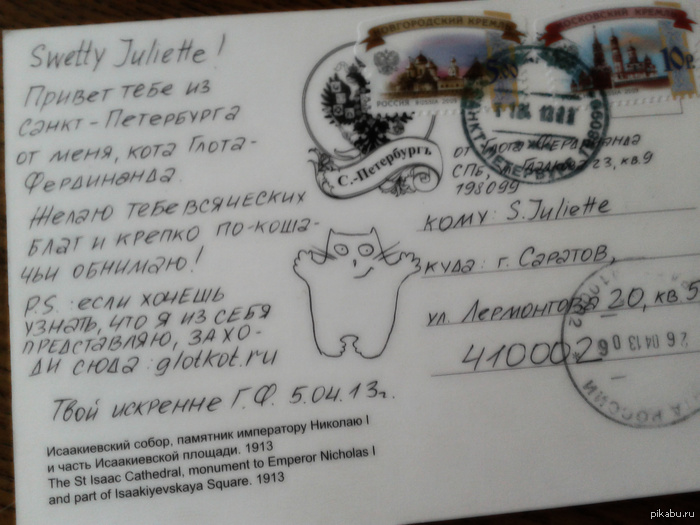 Swetty Juliette!
Привет тебе из
Санкт-Петербурга
от меня, кота Глота-
Фердинанда.
Желаю тебе всяческих
благ и крепко по-коша-
чьи обнимаю!
P.S.: если хочешь
узнать, что я из себя
представляю, захо-
ди сюда: glotkot.ru
Твой искренне Г.Ф. 5.04.13г.
Исаакиевский собор, памятник императору Николаю I
и часть Исаакиевской площади. 1913
The St Isaac Cathedral, monument to Emperor Nicholas I
and part of Isaakiyevskaya Square. 1913
НОВГОРОДСКИЙ КРЕМЛЬ
РОССИЯ ROSSIJA 2009
МОСКОВСКИЙ КРЕМЛЬ
10р.
САНКТ-ПЕТЕРБУРГ
С.-Петербургъ
от Глота Фердинанда
СПб, 23, кв.9
198099
кому: S.Juliette
куда: г. Саратов,
ул. Лермонтова 20, кв 5
410002
26 04 13 06
РОССИИ
pikabu.ru